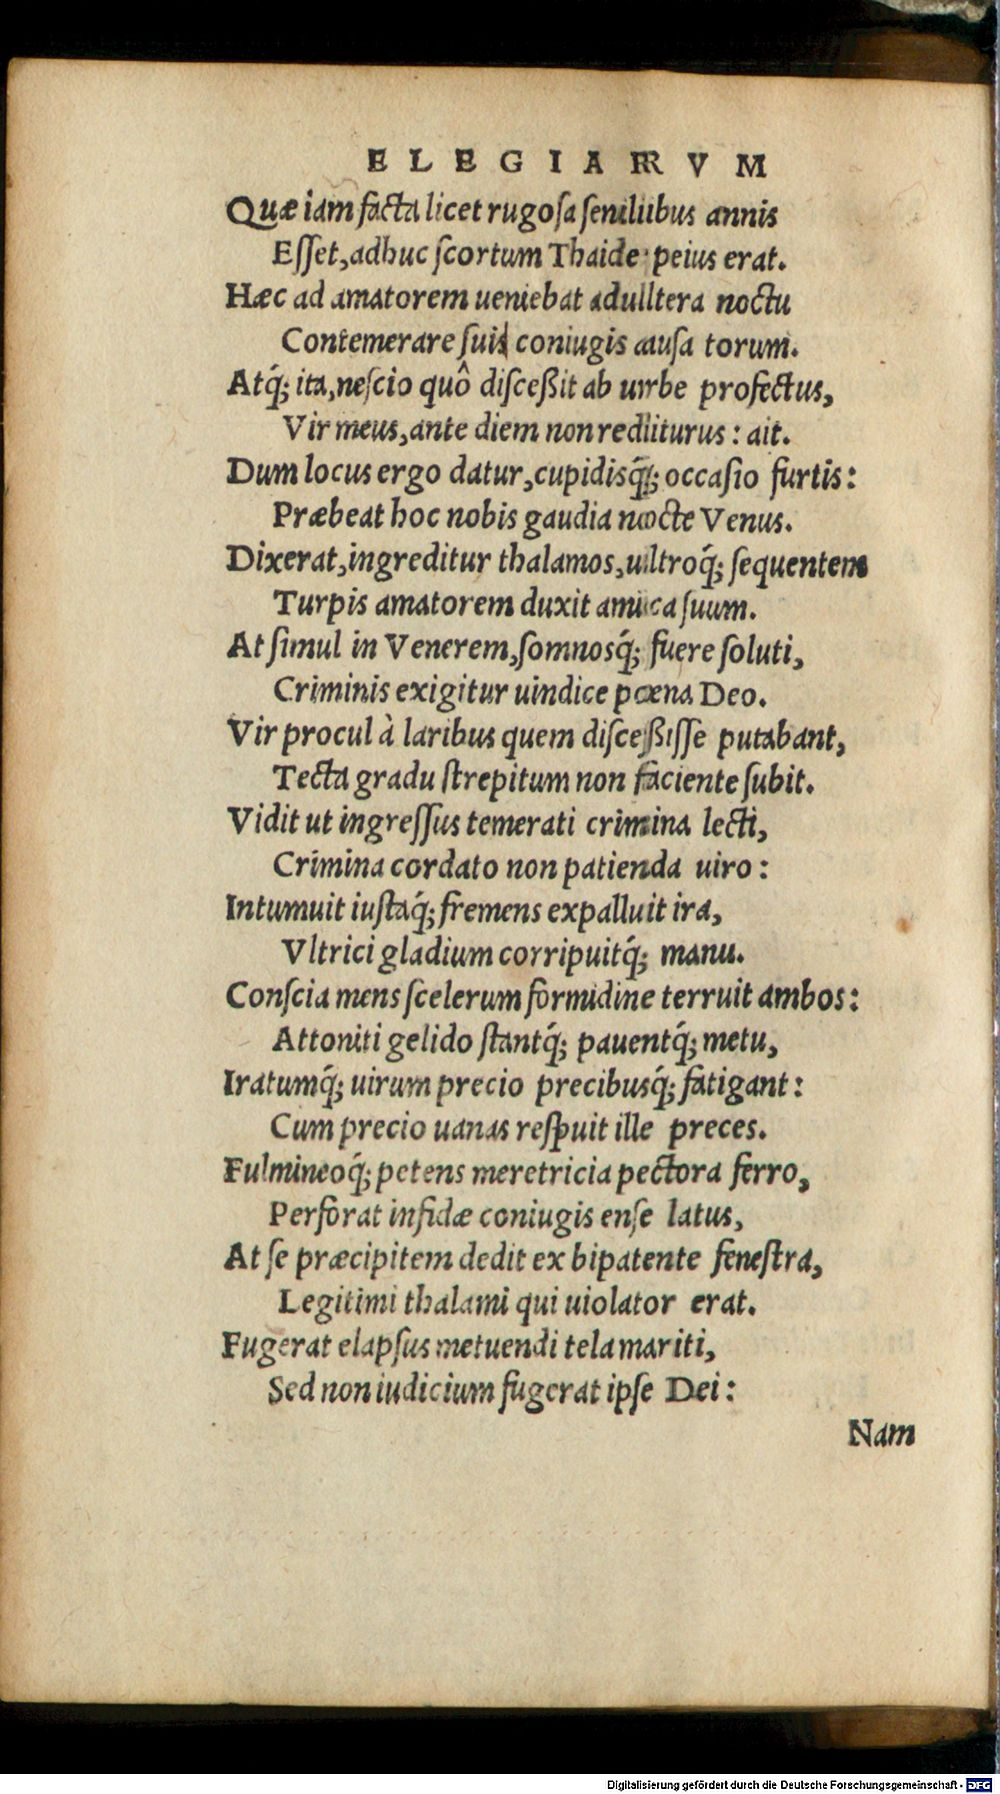 ELEGIARVM
Quæ iam facta licet rugosa senilibus annis
Esset, adhuc scortum Thaide peius erat.
Hæc ad amatorem ueniebat adultera noctu
Contemerare sui coniugis ausa torum.
Atq́; ita, nescio quô disceßit ab urbe profectus,
Vir meus, ante diem non rediturus: ait.
Dum locus ergo datur, cupidisq́; occasio furtis:
Præbeat hoc nobis gaudia nocte Venus.
Dixerat, ingreditur thalamos, ultroq́; sequentem
Turpis amatorem duxit amica suum.
At simul in Venerem, somnosq́; fuere soluti,
Criminis exigitur uindice pœna Deo.
Vir procul à laribus quem disceßisse putabant,
Tecta gradu strepitum non faciente subit.
Vidit ut ingressus temerati crimina lecti,
Crimina cordato non patienda uiro:
Intumuit iustaq́; fremens expalluit ira,
Vltrici gladium corripuitq́; manu.
Conscia mens scelerum formidine terruit ambos:
Attoniti gelido stantq́; pauentq́; metu,
Iratumq́; uirum precio precibusq́; fatigant:
Cum precio uanas respuit ille preces.
Fulmineoq́; petens meretricia pectora ferro,
Perforat infidæ coniugis ense latus,
At se præcipitem dedit ex bipatente fenestra,
Legitimi thalami qui uiolator erat.
Fugerat elapsus metuendi tela mariti,
Sed non iudicium fugerat ipse Dei:
Nam
Digitalisierung gefördert durch die Deutsche Forschungsgemeinschaft - DFG